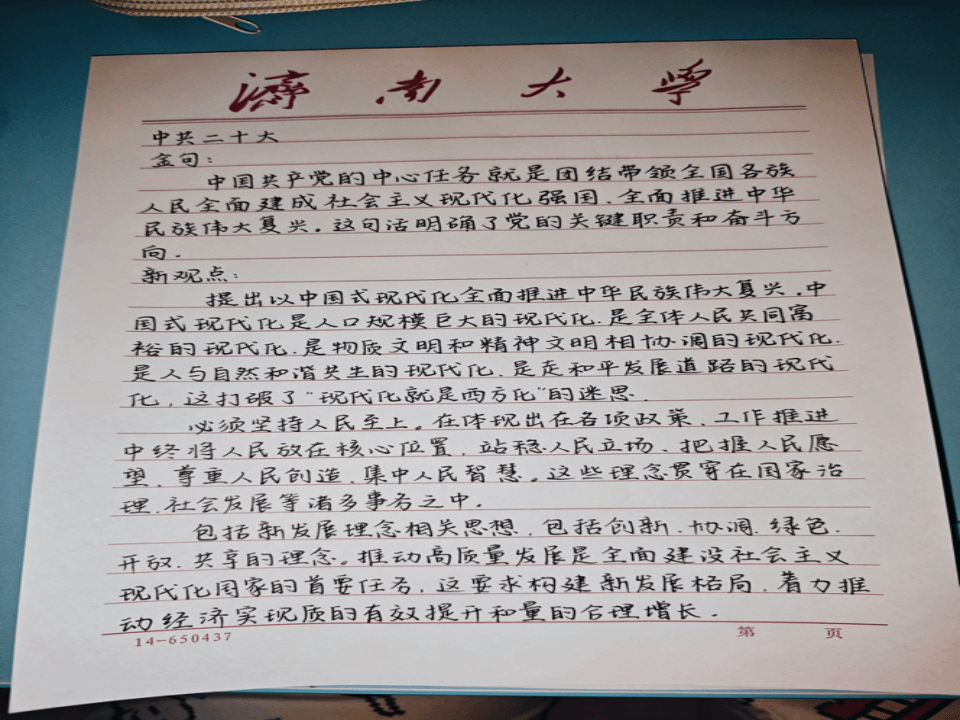 濟南大学
中共二十大
金句：
中国共产党的中心任务就是团结带领全国各族
人民全面建成社会主义现代化强国、全面推进中华
民族伟大复兴。这句话明确了党的关键职责和奋斗方
向.
新观点：
提出以中国式现代化全面推进中华民族伟大复兴.中
国式现代化是人口规模巨大的现代化.是全体人民共同富
裕的现代化.是物质文明和精神文明相协调的现代化.
是人与自然和谐共生的现代化.是走和平发展道路的现代
化，这打破了“现代化就是西方化”的迷思.
必须坚持人民至上。在体现出在各项政策、工作推进
中终将人民放在核心位置，站稳人民立场、把握人民愿
望、尊重人民创造、集中人民智慧。这些理念贯穿在国家治
理.社会发展等诸多事务之中。
包括新发展理念相关思想，包括创新.协调.绿色.
开放.共享的理念。推动高质量发展是全面建设社会主义
现代化国家的首要任务，这要求构建新发展格局，着力推
动经济实现质的有效提升和量的合理增长.
14-650437
第 页